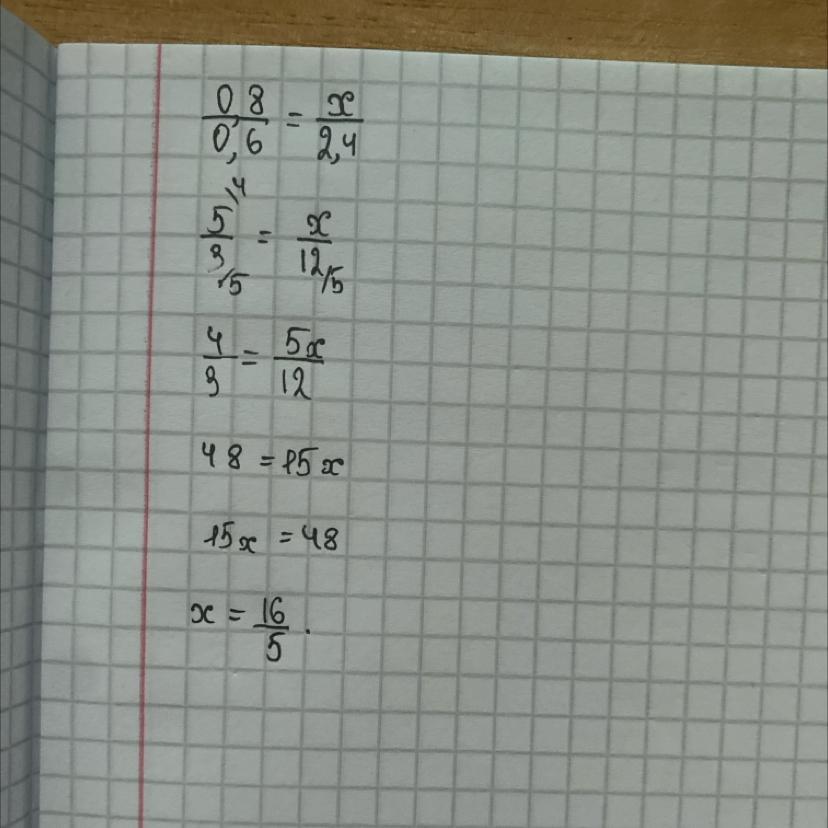 0,8/0,6 = x/2,4
5/4 / 3/5 = x / 12/5
4/3 = 5x/12
48 = 15x
15x = 48
x = 16/5.